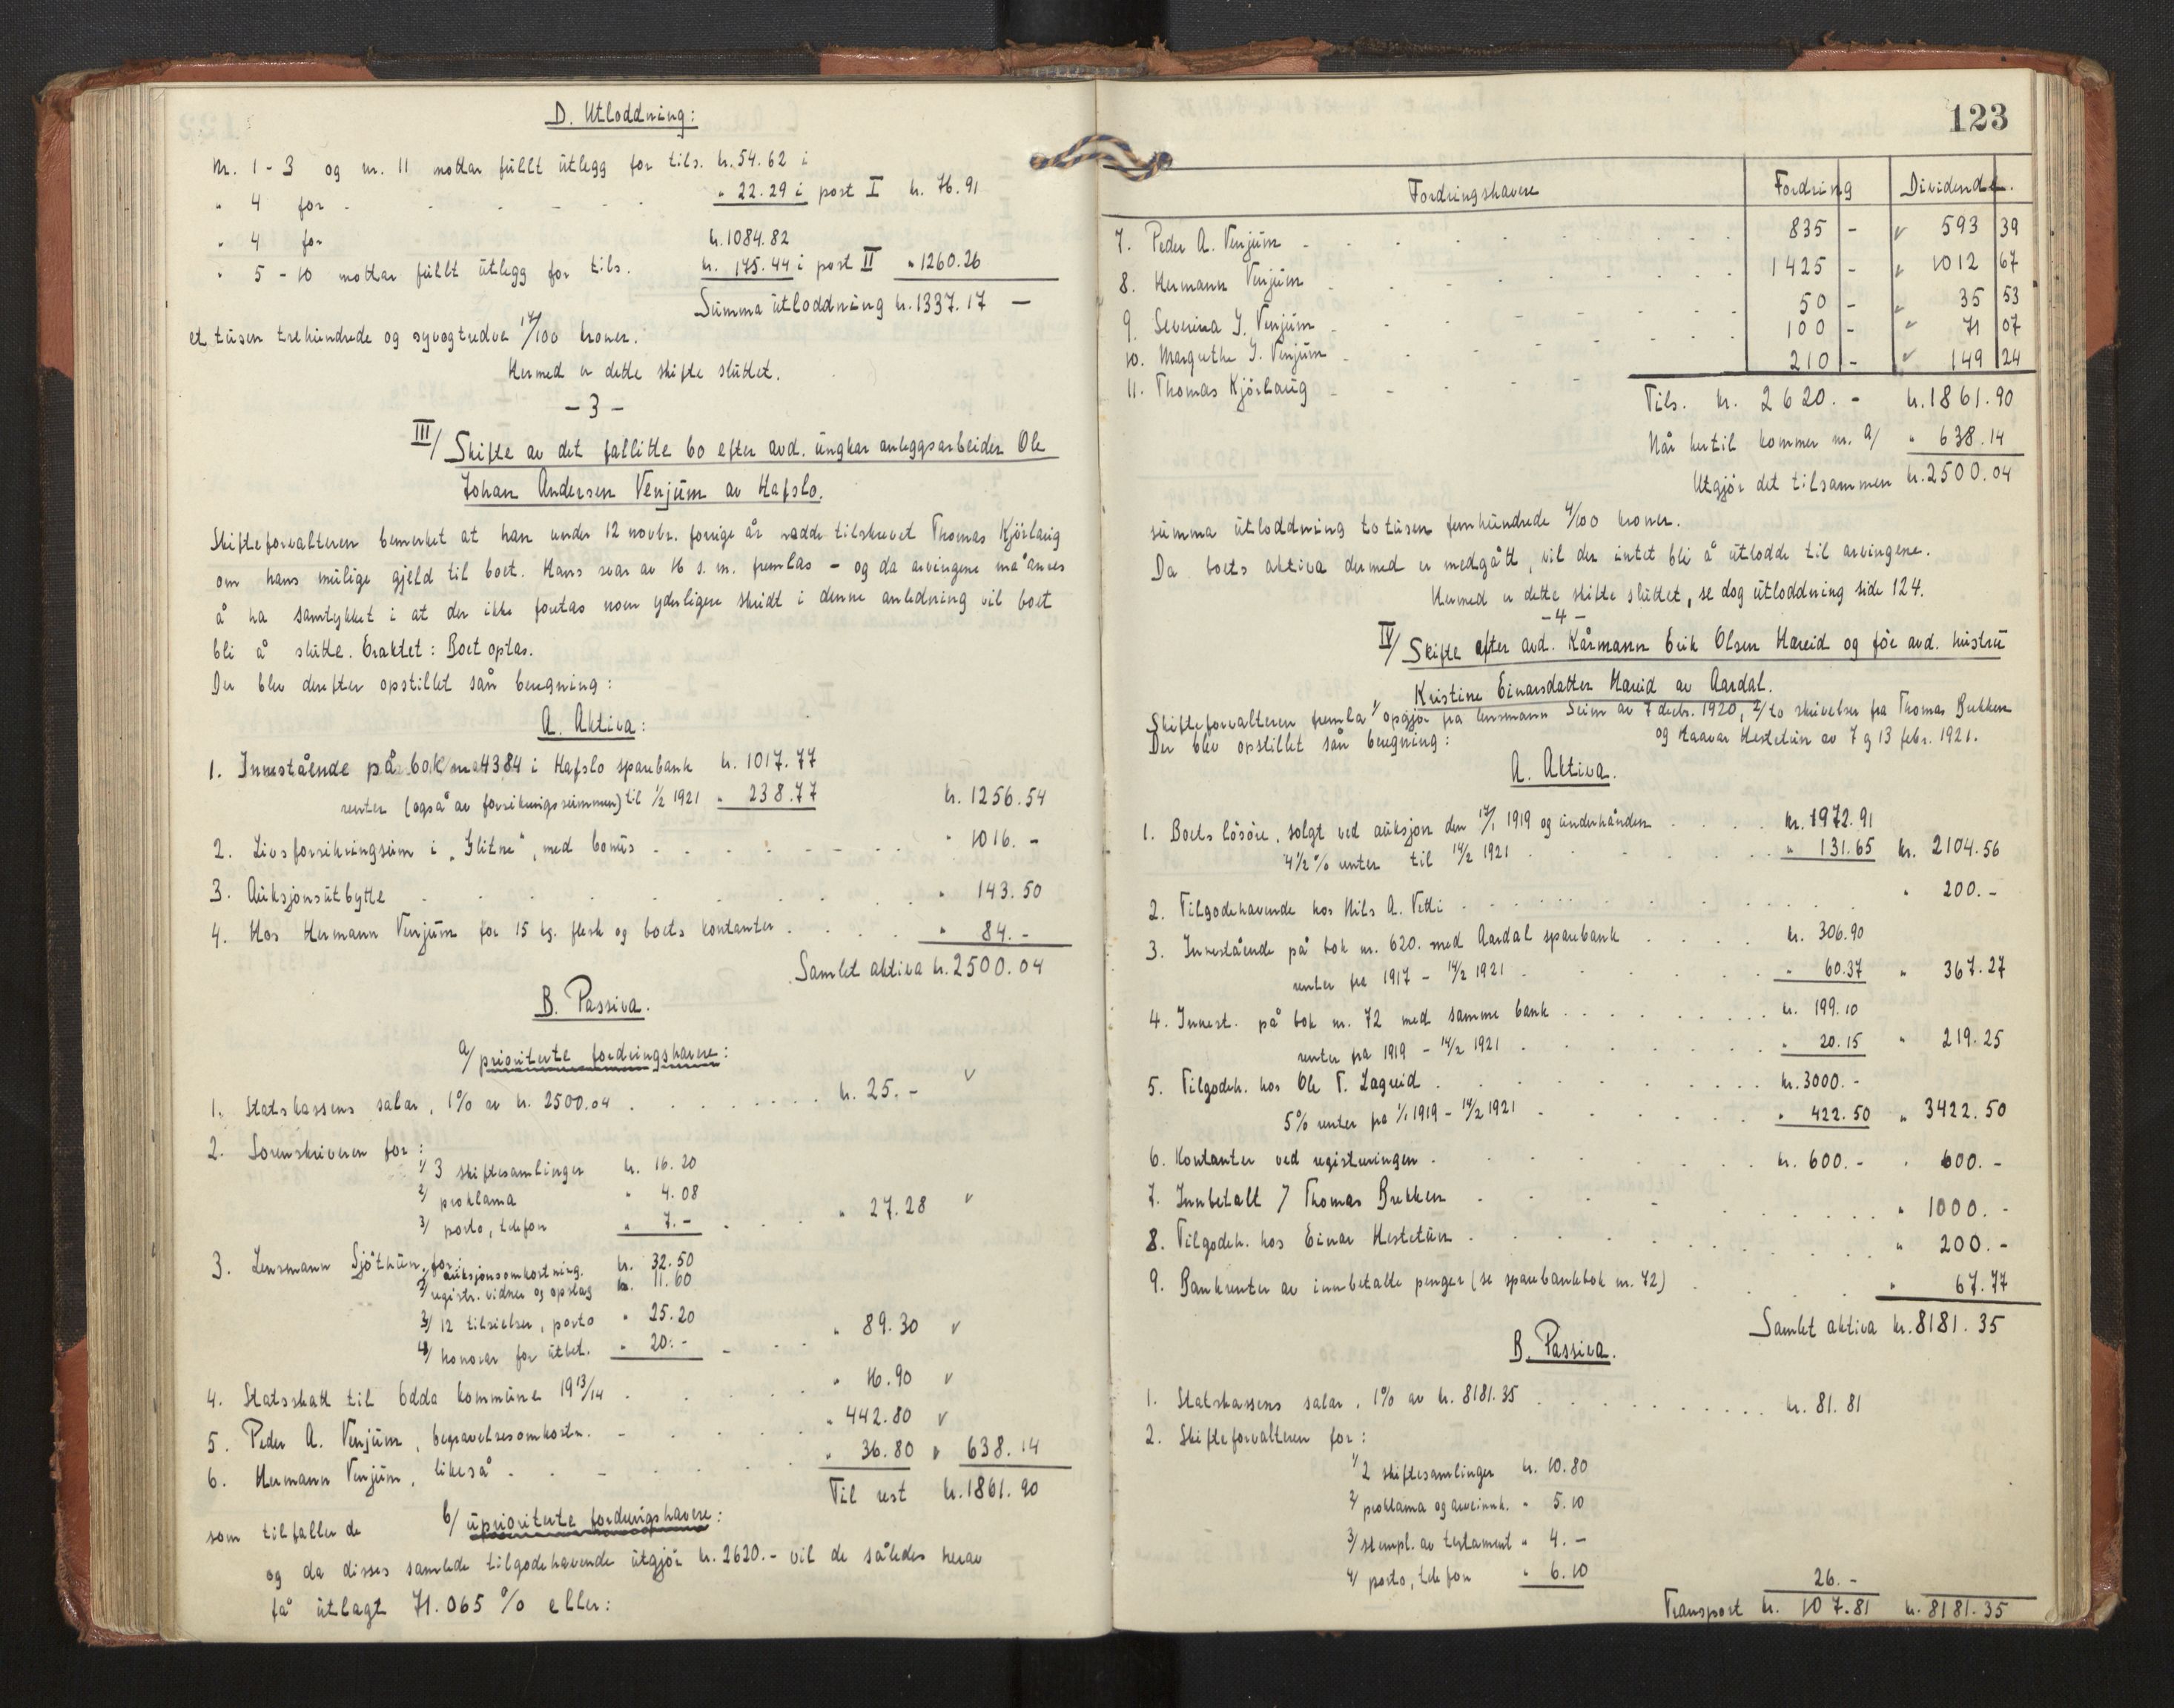 D. Utloddning:
Nr. 1 - 3 og nr. 11 mottar fullt utlegg for tils. kr. 54.62 i
" 4 for - - - - - - " 22.29 i post I kr. 76.91
" 4 for kr. 1084.82
" 5 - 10 mottar fullt utlegg for tils. kr. 175.44 i post II " 1260.26
Summa utloddning kr. 1337.17 —
et tusen trehundrede og syvogtredve 17/100 kroner.
Hermed er dette skifte sluttet.
- 3 -
III/ Skifte av det fallitte bo efter avd. ungkar anleggsarbeider Ole
Johan Andersen Venjum av Hafslo.
Skifteforvalteren bemerket at han under 12 novbr. forrige år hadde tilskrevet Thomas Kjörlaug
om hans mulige gjeld til boet. Hans svar av 16 s. m. fremlas - og da arvingene må anses
å ha samtykket i at der ikke foretas noen yderligere skridt i denne anledning vil boet
bli å slutte. Eraktet: Boet optas.
Der blev derefter opstillet sån beregning:
A. Aktiva:
1. Innestående på bok nr. 4384 i Hafslo sparebank kr. 1017.77
renter (også av forsikringssummen) til 1/2 1921 " 238.77 kr. 1256.54
2. Livsforsikringsum i "Glitne", med bonus - - - - - - - " 1016. -
3. Auksjonsutbytte . . . . . . . . " 143.50
4. Hos Hermann Venjum for 15 kg. flesk og boets kontanter . . . . " 84. -
Samlet aktiva kr. 2500.04
B. Passiva.
a/ prioriterte fordringshavere:
1. Statskassens salar, 1% av kr. 2500.04 . . . . . . . . kr. 25. - v
2. Sorenskriveren for:
1/ 3 skiftesamlinger kr. 16.20
2/ proklama " 4.08
3/ porto, telefon " 7. - . . . . " 27.28 v
3. Lensmann Sjöthun for
1/ auksjonsomkostning. kr. 32.50
2/ registr. vidner og opslag kr. 11.60
3/ 12 tilsielser, porto " 25.20
4/ honorar for utbet. " 20. - - . . . " 89.30 v
4. Statsskatt til Odda kommune 1913/14 . . . . . " 16.90 v
5. Peder A. Venjum, begravelsesomkostn. - . . . . " 442.80 v
6. Hermann Venjum, likeså . . - . . . . " 36.80 v 638.14
Til rest kr. 1861.90
som tilfaller de b/ uprioriterte fordringshavere:
og da disses samlede tilgodehavende utgjör kr. 2620. - vil de således herav
få utlagt 71.065 % eller:
123
Fordringshavere Fordring Dividende.
7. Peder A. Venjum - . . . . . . . 835 - v 593 39
8. Hermann Venjum - . . . . . . . 1425 - v 1012 67
9. Severina J. Venjum - . . - - - . . 50 - v 35 53
10. Margrethe J. Venjum - . . . . . . 100 - v 71 07
11. Thomas Kjörlaug - - - - - . 210 - v 149 24
Tils. kr. 2620. - kr. 1861.90
Når hertil kommer nr. a/ " 638.14
Utgjör det tilsammen kr. 2500.04
summa utloddning totusen femhundrede 4/100 kroner.
Da boets aktiva dermed er medgått, vil der intet bli å utlodde til arvingene.
Hermed er dette skifte sluttet, se dog utloddning side 124.
- 4 -
IV/ Skifte efter avd. Kårmann Erik Olsen Hareid og för avd. hustru
Kristine Einarsdatter Hareid av Aardal.
Skifteforvalteren fremla 1/ opgjör fra lensmann Seim av 7 decbr. 1920, 2/ to skrivelser fra Thomas Brekken
og Haavar Hestetun av 7 og 13 febr. 1921.
Der blev opstillet sån beregning:
A. Aktiva.
1. Boets lösöre, solgt ved auksjon den 17/1 1919 og underhånden . . . . kr. 1972.91
4 1/2 % renter til 14/2 1921 . . . . . . . " 131.65 kr. 2104.56
2. Tilgodehavende hos Nils A. Vetti . . . . . . . . . . " 200. -
3. Innestående på bok nr. 620. med Aardal sparebank . . . . kr. 306.90
renter fra 1917 - 14/2 1921 . . . . . . " 60.37 " 367.27
4. Innest. på bok nr. 72 med samme bank . . . . . . . kr. 199.10
renter fra 1919 - 14/2 1921 . . . . . . " 20.15 " 219.25
5. Tilgodeh. hos Ole T. Lagreid . . . . . . . . kr. 3000. -
5% renter fra 1/1 1919 - 14/2 1921 . . . . . . " 422.50 " 3422.50
6. Kontanter ved registreringen . . . . . . . kr. 600. - " 600. -
7. Innbetalt / Thomas Brekken . . . . . . . . . " 1000. -
8. Tilgodeh. hos Einar Hestetun . . . . . . . . . " 200. -
9. Bankrenter av innbetalte penger (se sparebankbok nr. 72) . . . . " 67.77
Samlet aktiva kr. 8181.35
B. Passiva.
1. Statskassens salar, 1% av kr. 8181.35 . . . . . . . . . kr. 81.81
2. Skifteforvalteren for:
1/ 2 skiftesamlinger kr. 10.80
2/ proklama og arveinnk. " 5.10
3/ stempl. av testament " 4. -
4/ porto, telefon " 6.10
26. -
Transport kr. 107.81 kr. 8181.35